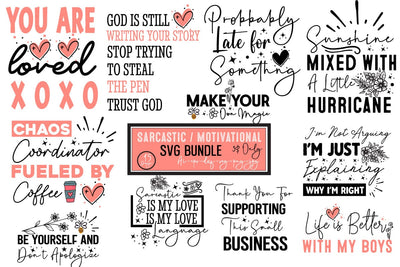 YOU ARE
loved
XOXO
GOD IS STILL
WRITING YOUR STORY
STOP TRYING
TO STEAL
THE PEN
TRUST GOD
Probpably
Late for
Something
MAKE YOUR
Own Magic
Sunshine
MIXED WITH
A Little
HURRICANE
CHAOS
Coordinator
FUELED BY
Coffee
SARCASTIC / MOTIVATIONAL
SVG BUNDLE
Only
I'm Not Arguing
I'M JUST
Explaining
WHY I'M RIGHT
BE YOURSELF AND
Don't Apologize
Sarcastic
IS MY LOVE
IS MY LOVE
Language
Thank You For
SUPPORTING
This Small
BUSINESS
Life is Better
WITH MY BOYS